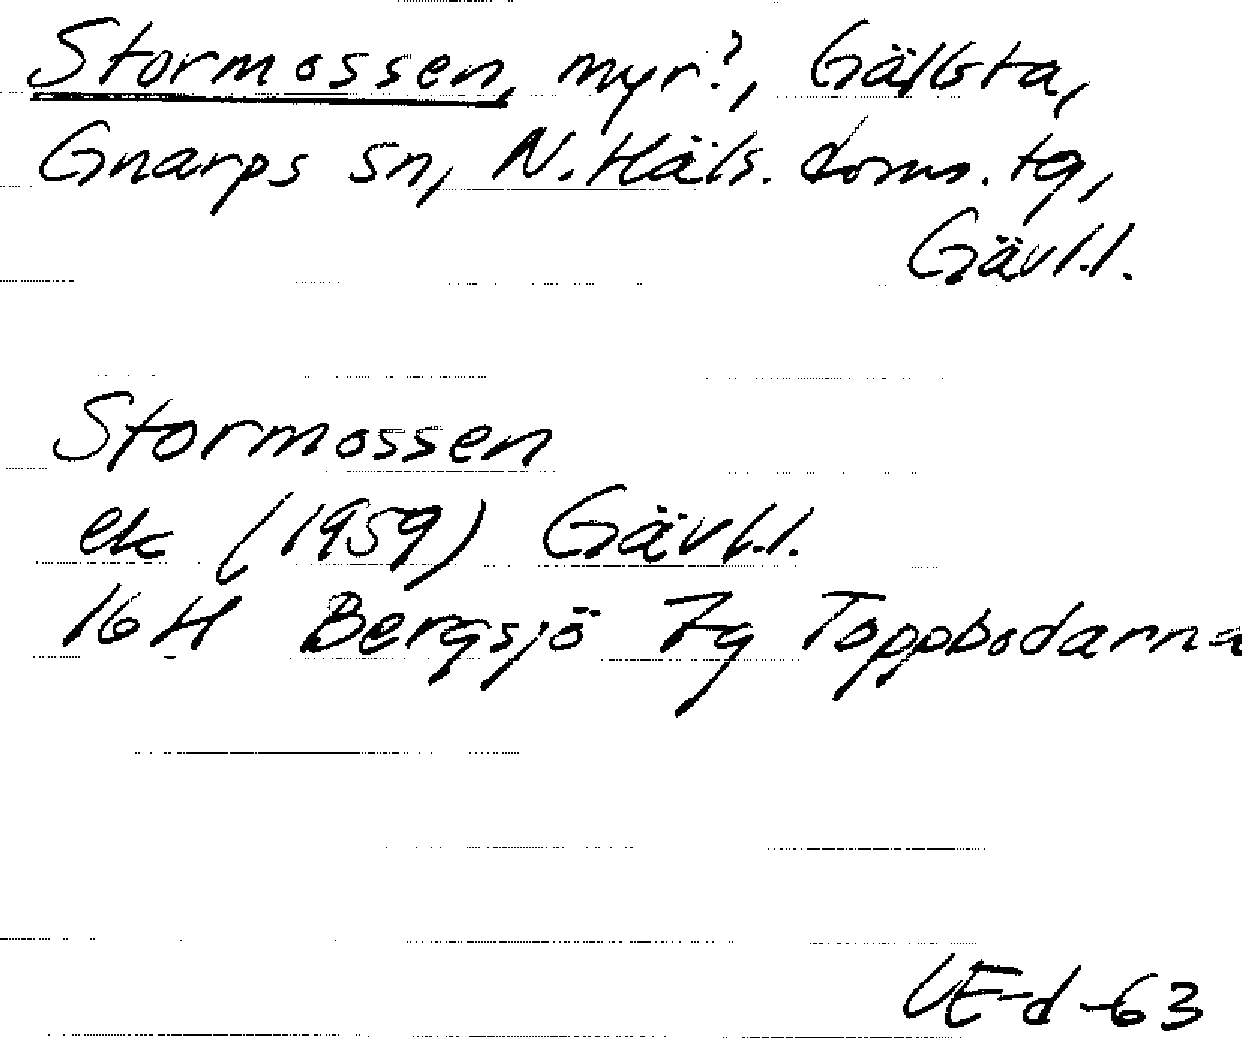 Stormossen, myr?, Gällsta,
Gnarps sn, N. Häls. doms. tg,
Gävl.l.
Stormossen
ek (1959) Gävl.l.
16H Bergsjö 7g Toppbodarna
UE-d-63